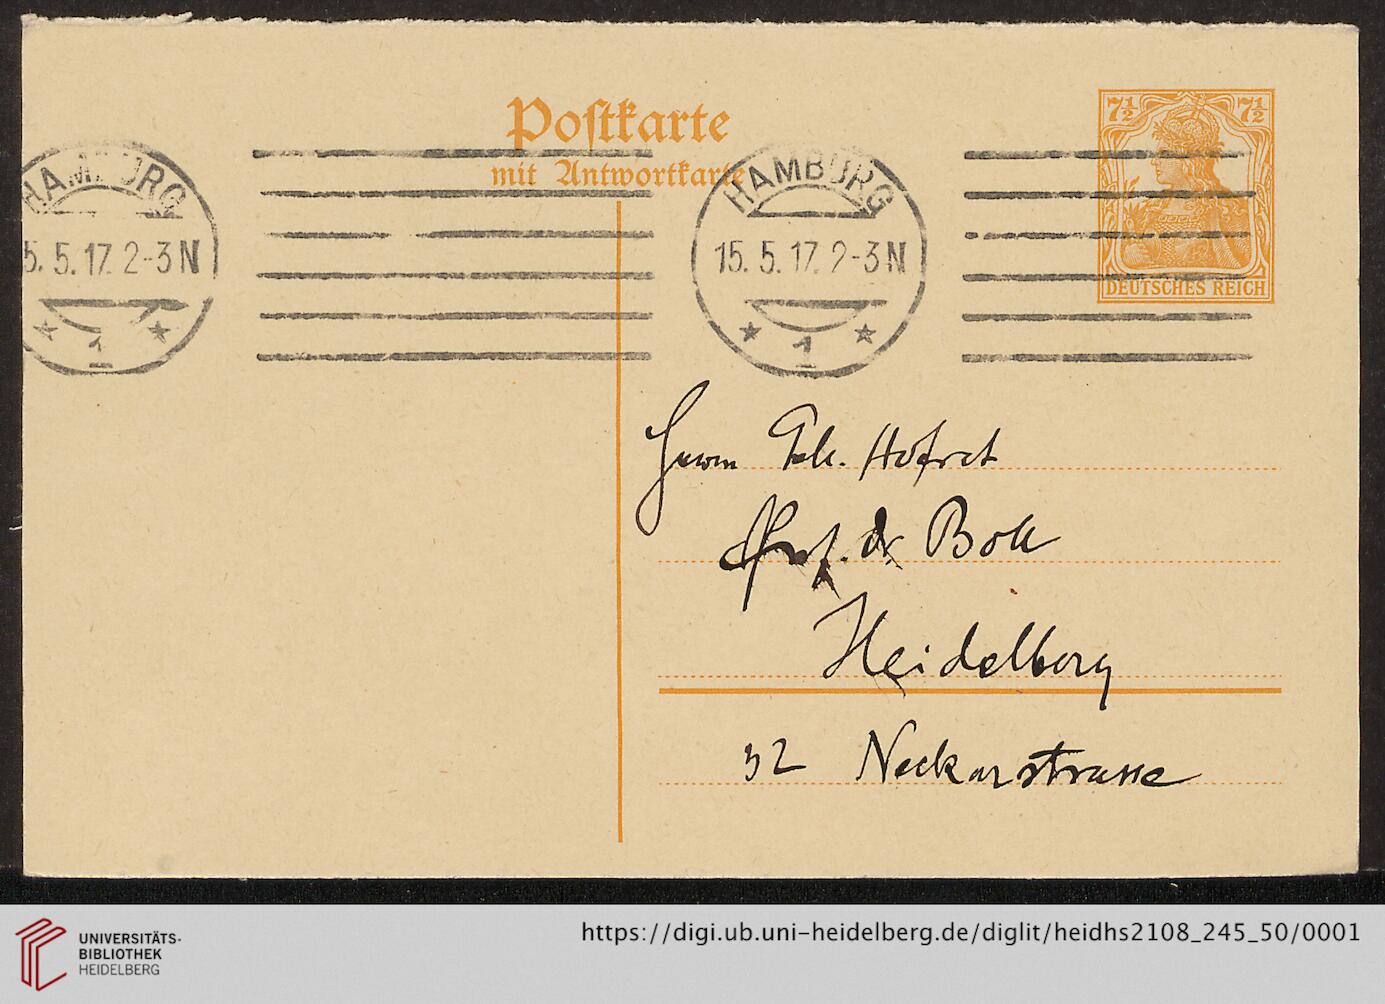 Postkarte
mit Antwortkarte
7½ 7½
DEUTSCHES REICH
HAMBURG
5.5.17. 2-3N
1
HAMBURG
15.5.17. 2-3N
1
Herrn Geh. Hofrat
Prof. Dr. Boll
Heidelberg
32 Neckarstrasse
UNIVERSITÄTS-
BIBLIOTHEK
HEIDELBERG
https://digi.ub.uni-heidelberg.de/diglit/heidhs2108_245_50/0001